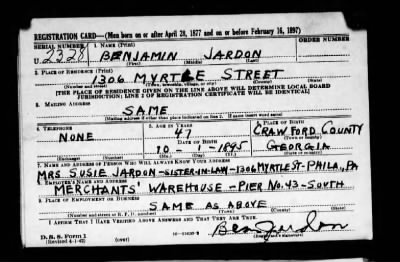 REGISTRATION CARD—(Men born on or after April 28, 1877 and on or before February 16, 1897)
SERIAL NUMBER 1. NAME (Print) ORDER NUMBER
U. 2328 BENJAMIN JARDON
(First) (Middle) (Last)
2. PLACE OF RESIDENCE (Print)
1306 MYRTLE STREET
(Number and street) (Town, township, village, or city) (County) (State)
[THE PLACE OF RESIDENCE GIVEN ON THE LINE ABOVE WILL DETERMINE LOCAL BOARD
JURISDICTION; LINE 2 OF REGISTRATION CERTIFICATE WILL BE IDENTICAL]
3. MAILING ADDRESS
SAME
[Mailing address if other than place indicated on line 2. If same insert word same]
4. TELEPHONE 5. AGE IN YEARS 6. PLACE OF BIRTH
NONE 47 CRAWFORD COUNTY
DATE OF BIRTH (Town or county)
10 - 1 - 1895 GEORGIA
(Exchange) (Number) (Mo.) (Day) (Yr.) (State or country)
7. NAME AND ADDRESS OF PERSON WHO WILL ALWAYS KNOW YOUR ADDRESS
MRS SUSIE JARDON-SISTER-IN-LAW-1306 MYRTLE ST-PHILA., PA
8. EMPLOYER'S NAME AND ADDRESS
MERCHANTS' WAREHOUSE - PIER NO. 43 - SOUTH
9. PLACE OF EMPLOYMENT OR BUSINESS
SAME AS ABOVE
(Number and street or R. F. D. number) (Town) (County) (State)
I AFFIRM THAT I HAVE VERIFIED ABOVE ANSWERS AND THAT THEY ARE TRUE.
D. S. S. Form 1
(Revised 4-1-42) (over) Ben Jardon
(Registrant's signature)